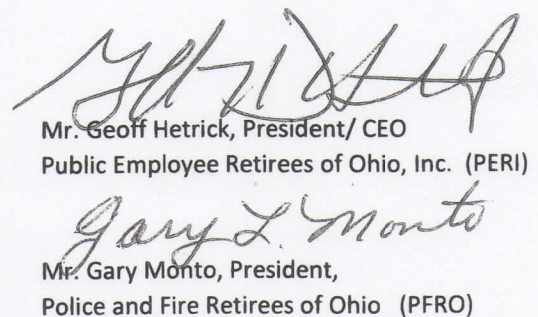 Mr. Geoff Hetrick, President/ CEO
Public Employee Retirees of Ohio, Inc. (PERI)
Gary L. Monto
Mr. Gary Monto, President,
Police and Fire Retirees of Ohio (PFRO)